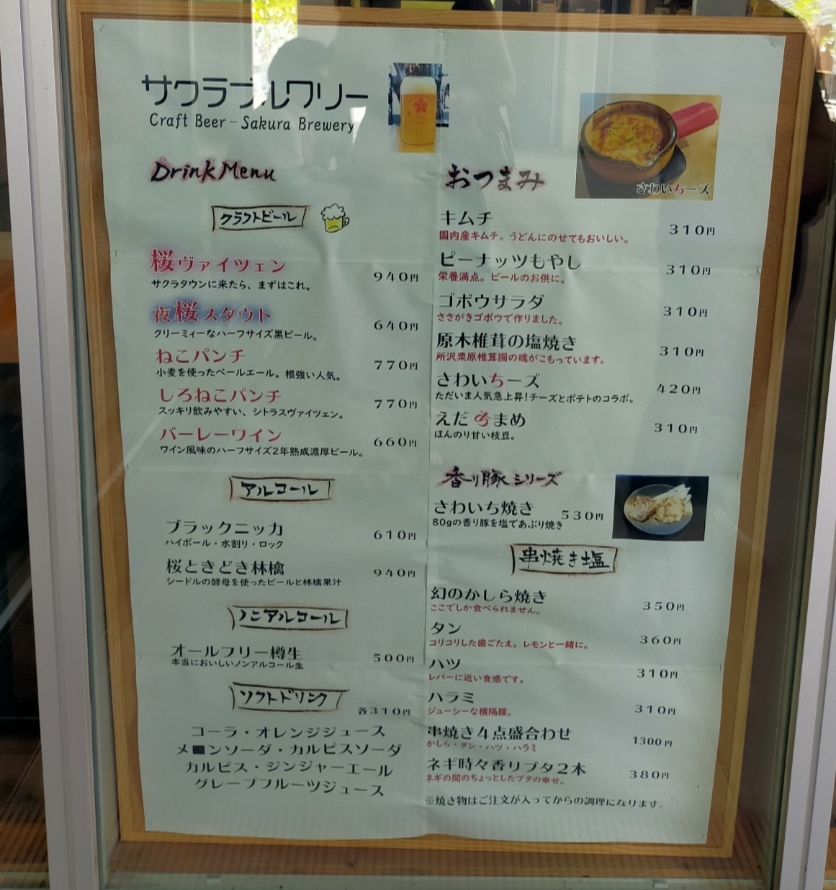 サクラブルワリー
Craft Beer - Sakura Brewery
Drink Menu
クラフトビール
桜ヴァイツェン 940円
サクラタウンに来たら、まずはこれ。
夜桜スタウト 640円
クリーミィーなハーフサイズ黒ビール。
ねこパンチ 770円
小麦を使ったペールエール。根強い人気。
しろねこパンチ 770円
スッキリ飲みやすい、シトラスヴァイツェン。
バーレーワイン 660円
ワイン風味のハーフサイズ2年熟成濃厚ビール。
アルコール
ブラックニッカ 610円
ハイボール・水割り・ロック
桜ときどき林檎 940円
シードルの酵母を使ったビールと林檎果汁
ノンアルコール
オールフリー樽生 500円
本当においしいノンアルコール生
ソフトドリンク 各310円
コーラ・オレンジジュース
メ■ンソーダ・カルピスソーダ
カルピス・ジンジャーエール
グレープフルーツジュース
おつまみ
さわいちーズ
キムチ 310円
国内産キムチ。うどんにのせてもおいしい。
ピーナッツもやし 310円
栄養満点。ビールのお供に。
ゴボウサラダ 310円
ささがきゴボウで作りました。
原木椎茸の塩焼き 310円
所沢栗原椎茸園の魂がこもっています。
さわいちーズ 420円
ただいま人気急上昇!チーズとポテトのコラボ。
えだまめ 310円
ほんのり甘い枝豆。
香り豚シリーズ
さわいち焼き 530円
80gの香り豚を塩であぶり焼き
串焼き塩
幻のかしら焼き 350円
ここでしか食べられません。
タン 360円
コリコリした歯ごたえ。レモンと一緒に。
ハツ 310円
レバーに近い食感です。
ハラミ 310円
ジューシーな横隔膜。
串焼き4点盛合わせ 1300円
かしら・タン・ハツ・ハラミ
ネギ時々香りブタ2本 380円
ネギの間のちょっとしたブタの幸せ。
※焼き物はご注文が入ってからの調理になります。